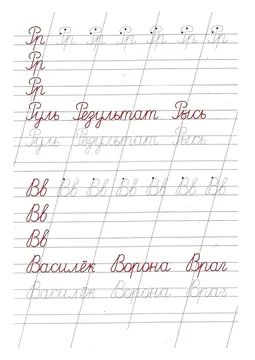 Рр Рр Рр Рр Рр Рр Рр
Рр
Рр
Руль Результат Рысь
Руль Результат Рысь
Вв Вв Вв Вв Вв Вв Вв
Вв
Вв
Василёк Ворона Враг
Василёк Ворона Враг